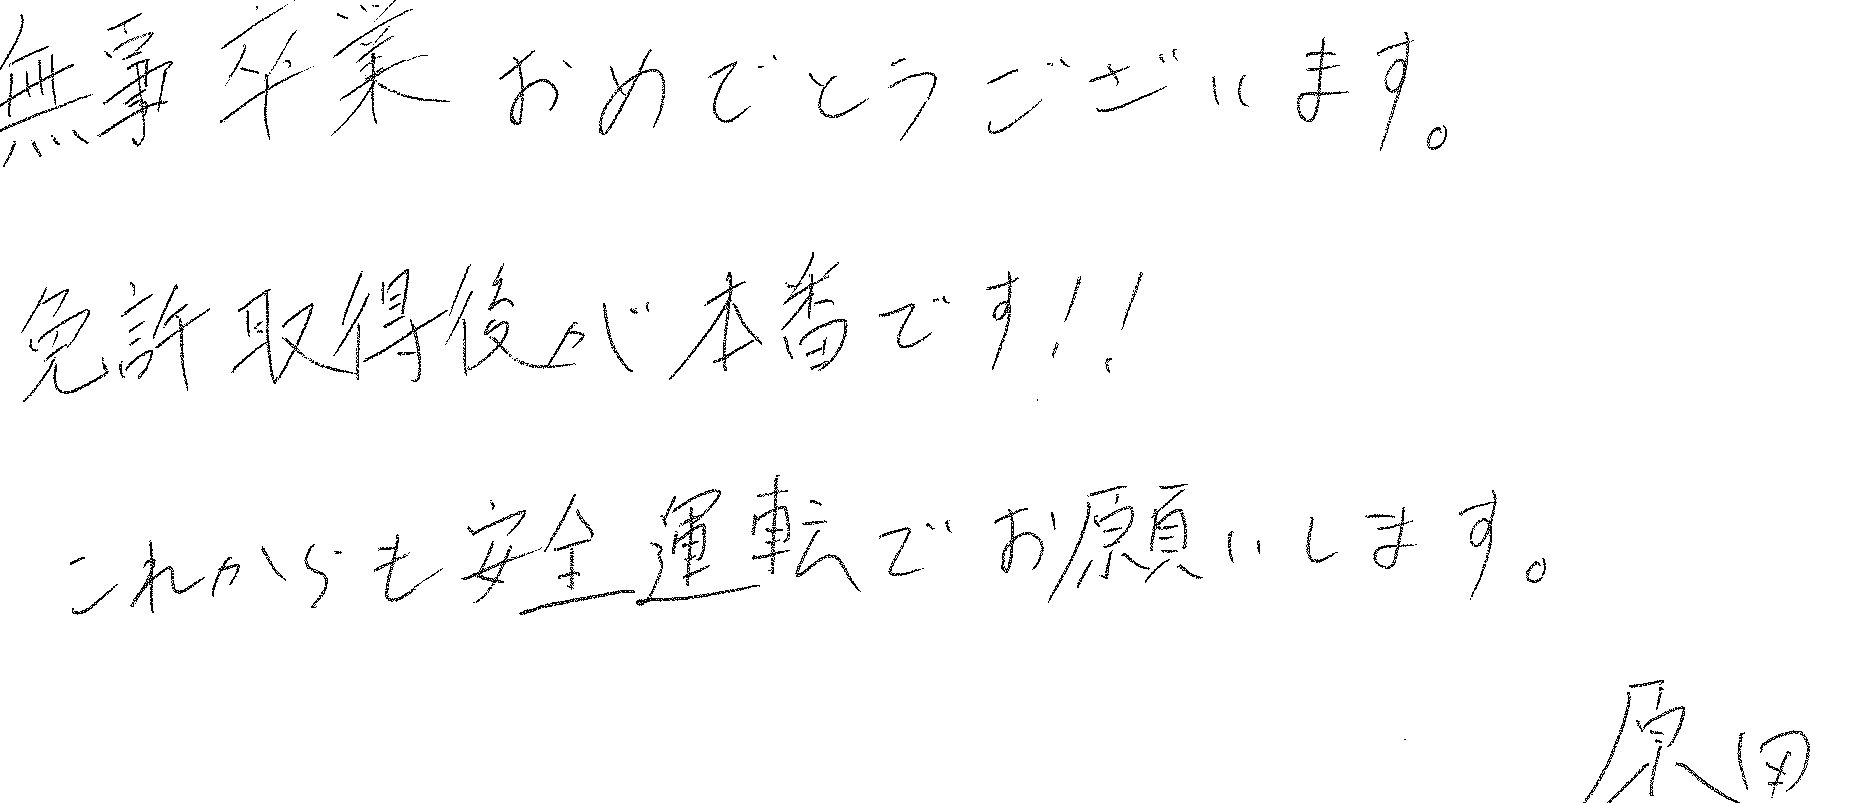 無事卒業おめでとうございます。
免許取得後が本番です!!
これからも安全運転でお願いします。
原田